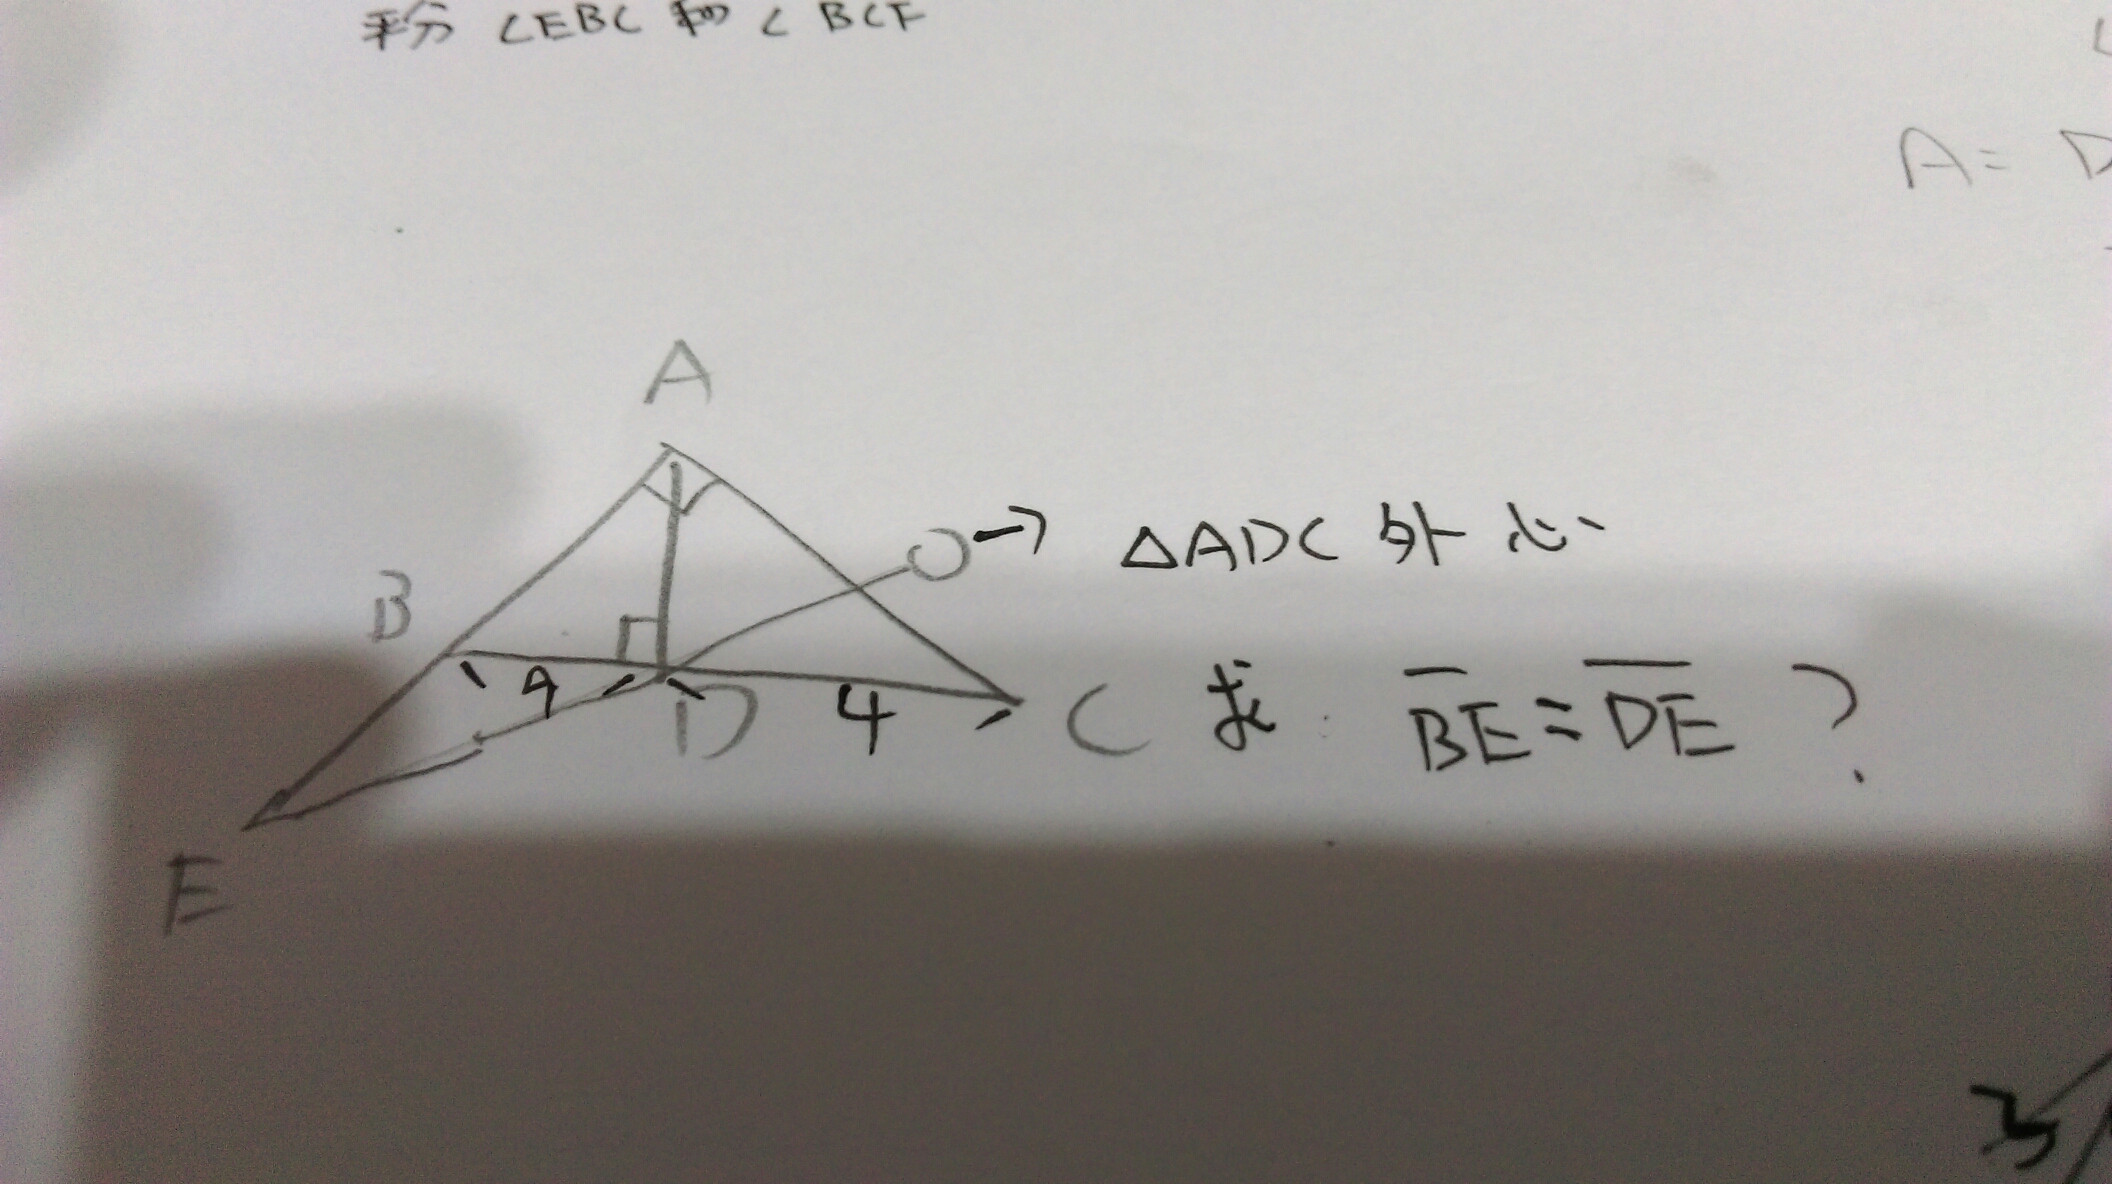 平分 ∠EBC 和 ∠BCF
A= D
A
O→ △ADC 外心
B
9 D 4 C 求: BE=DE ?
E